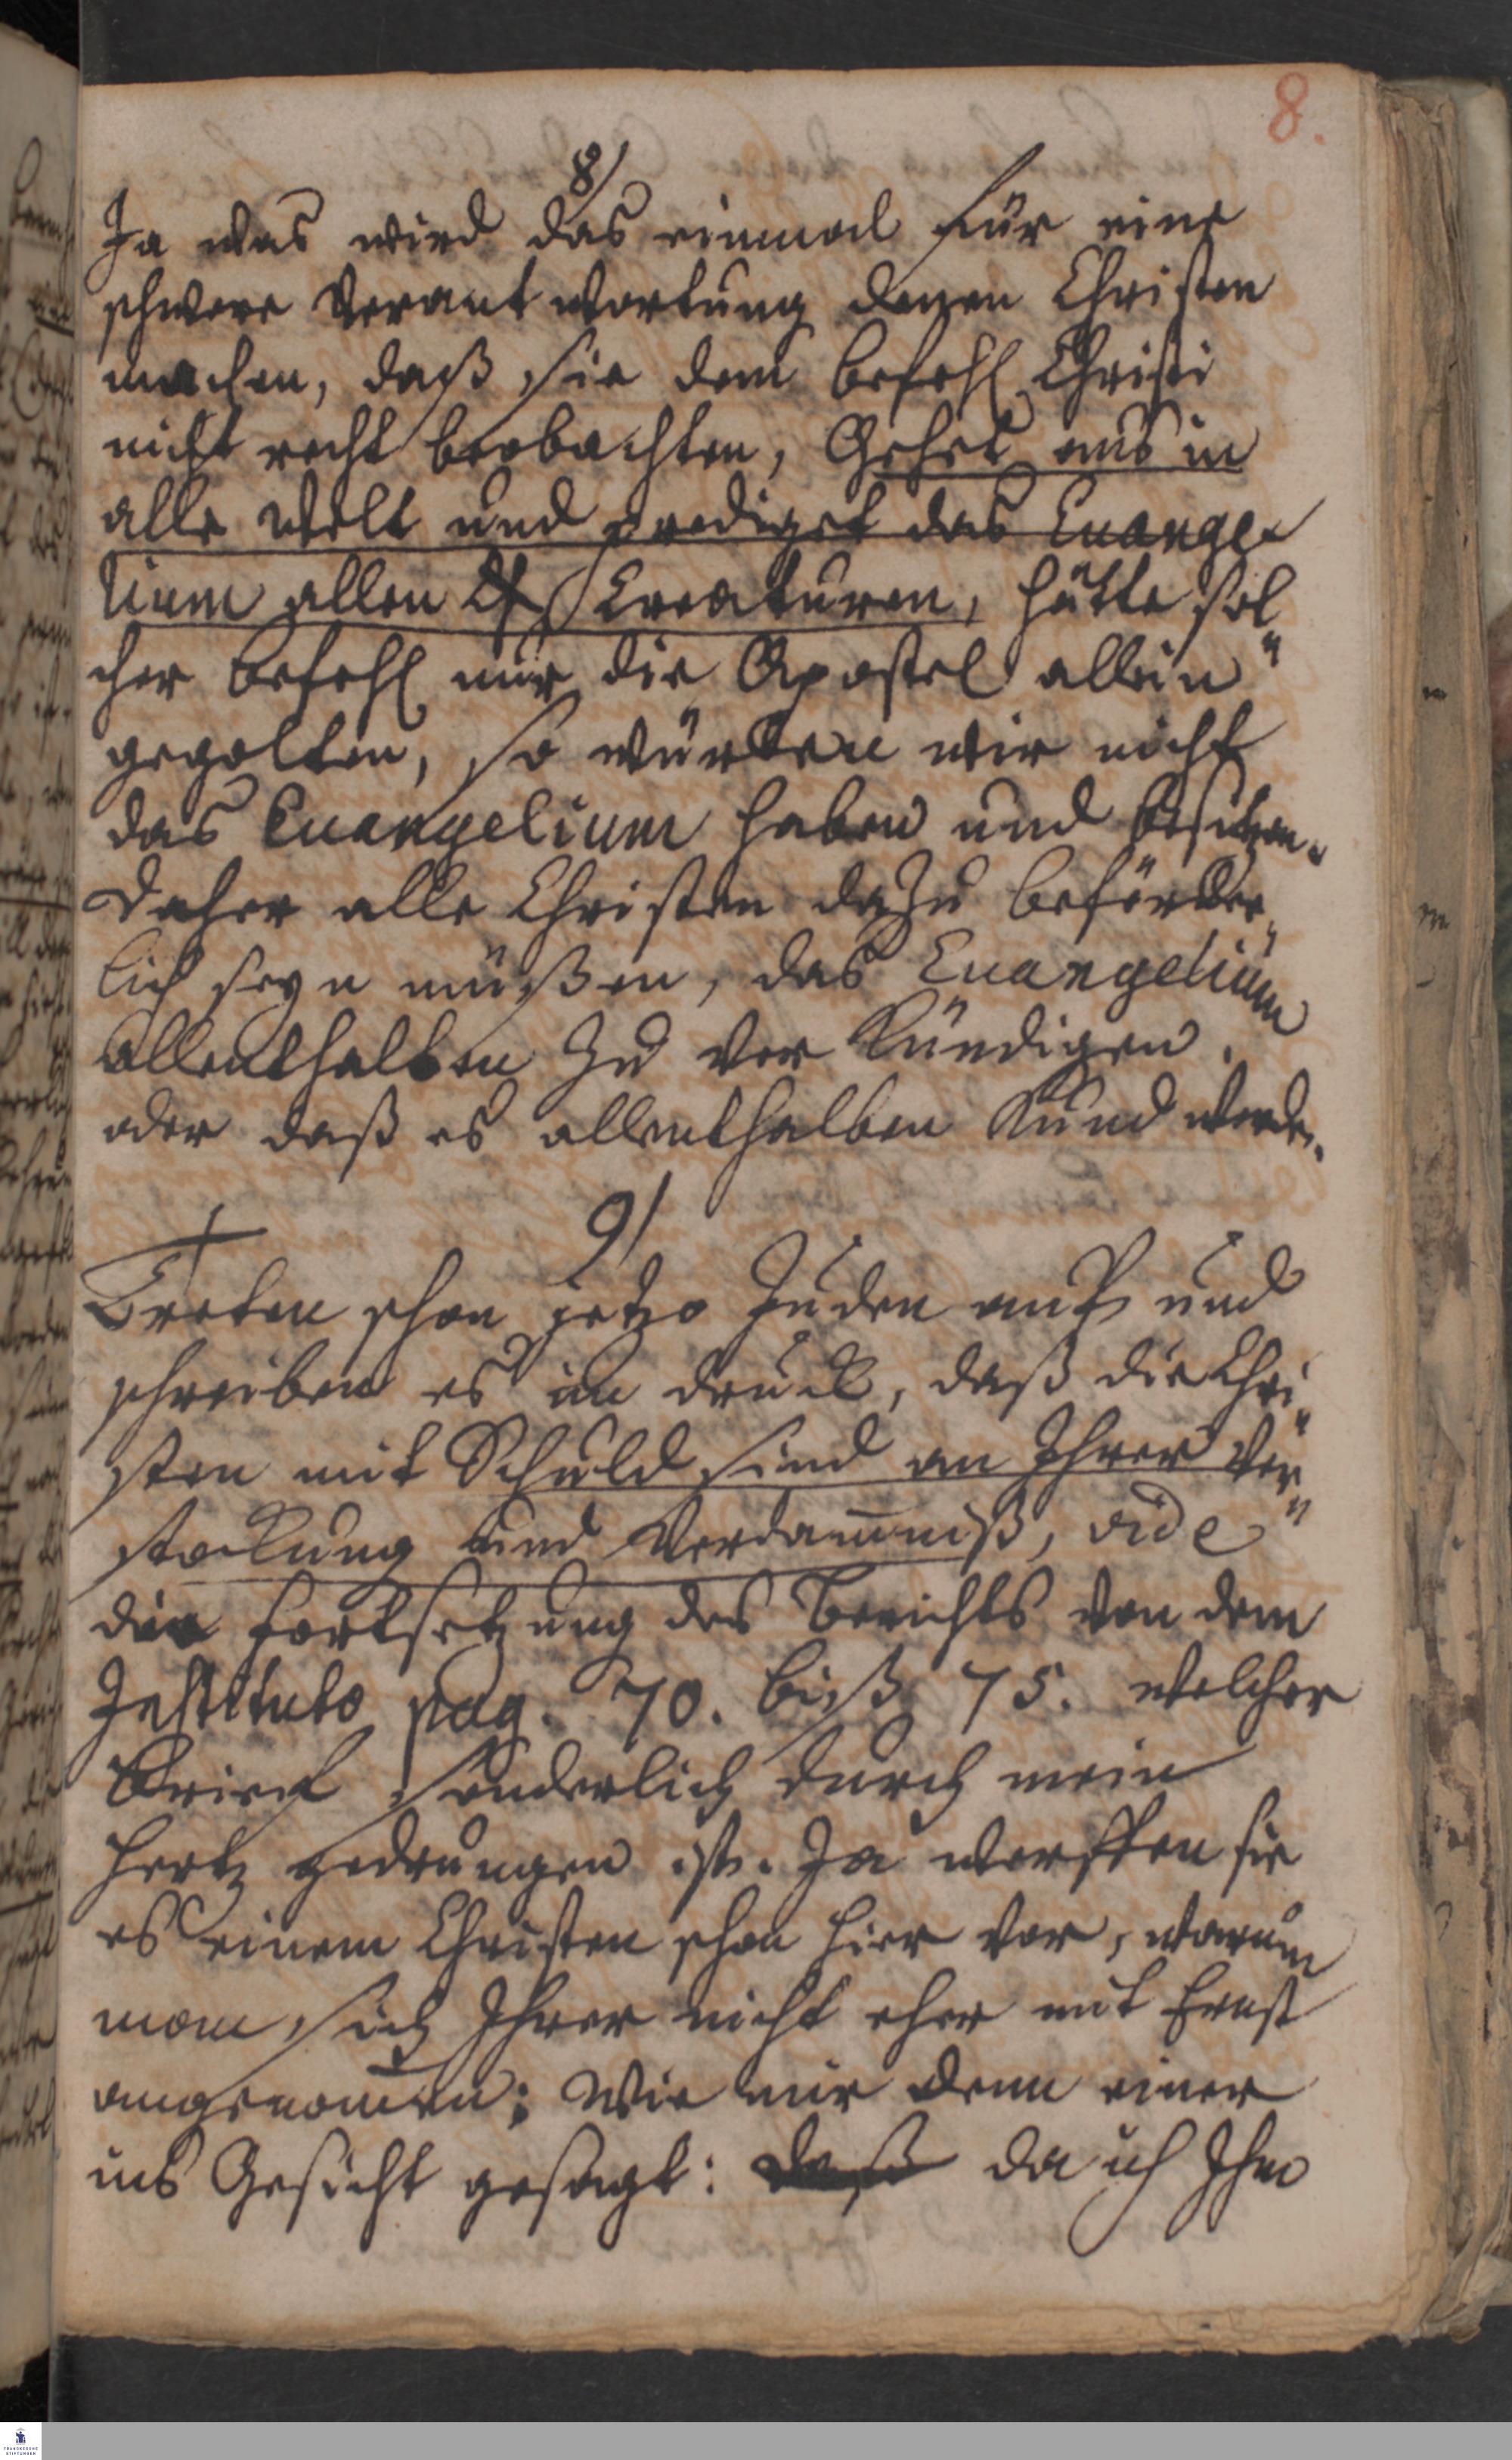 8.
8/
Ja was wird das einmal für eine
schwere Verantwortung denen Christen
machen, daß sie dem befehl Christi
nicht recht beobachten, Gehet aus in
alle Welt und prediget das Euange-
lium allen Creaturen, hätte sol
cher befehl nur die Apostel allein
gegolten, so würden wir nicht
das Euangelium haben und besitzen.
Daher alle Christen dazu beförder„
lich seyn müßen, das Euangelium
allenthalben zu verkündigen,
oder daß es allenthalben Kund werde.
9/
Treten schon jetzo Juden auff und
schreiben es im druck, daß die Chri„
sten mit Schuld sind an Ihrer Ver„
stockung und Verdam̅niß, vide
die Fortsetzung des Berichts von dem
Instituto pag. 70. biß 75. welcher
Brieff sonderlich durch mein
Hertz gedrungen ist. Ja werffen sie
es einem Christen schon hier vor, warum
man sich Ihrer nicht eher mit Ernst
angenom̅en: Wie mir denn einer
ins Gesicht gesagt: daß da ich Ihm
FRANCKESCHE
STIFTUNGEN